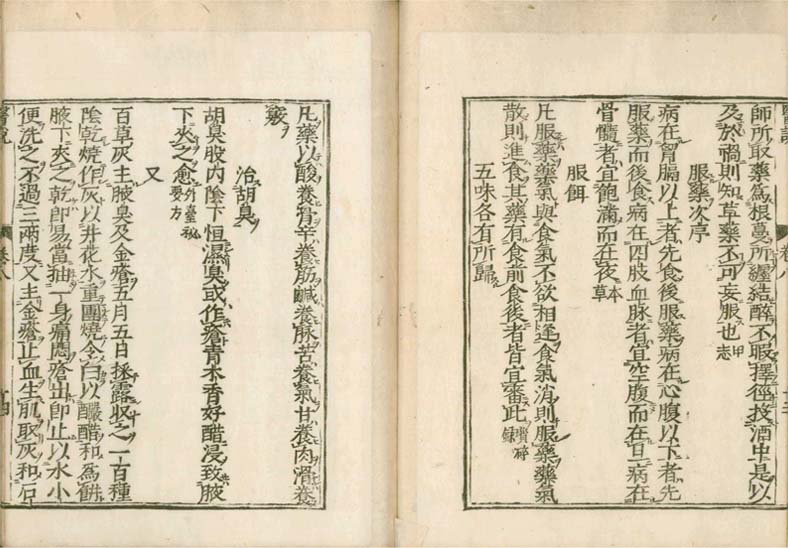 師所取藥爲根蔓所纏結醉不暇擇徑投酒中是以
及於禍則知草藥不可妄服也甲志
服藥次序
病在胷膈以上者先食後服藥病在心腹以下者先
服藥而後食病在四肢血脉者宜空腹而在旦病在
骨髓者宜飽滿而在夜本草
服餌
凡服藥藥氣與食氣不欲相逢食氣消則服藥藥氣
散則進食其藥有食前食後者皆宜審此瑣碎錄
五味各有所歸
凡藥以酸養骨辛養筋鹹養脉苦養氣甘養肉滑養
竅
治胡臭
胡臭股内陰下恒濕臭或作瘡青木香好醋浸致腋
下夾之愈外臺秘要方
又
百草灰主腋臭及金瘡五月五日採露收之一百種
陰乾燒作灰以井花水重團燒令白以釅醋和爲餅
腋下夾之乾即易當抽一身痛悶瘡出即止以水小
便洗之不過三兩度又主金瘡止血生肌取灰和石
醫說
卷八